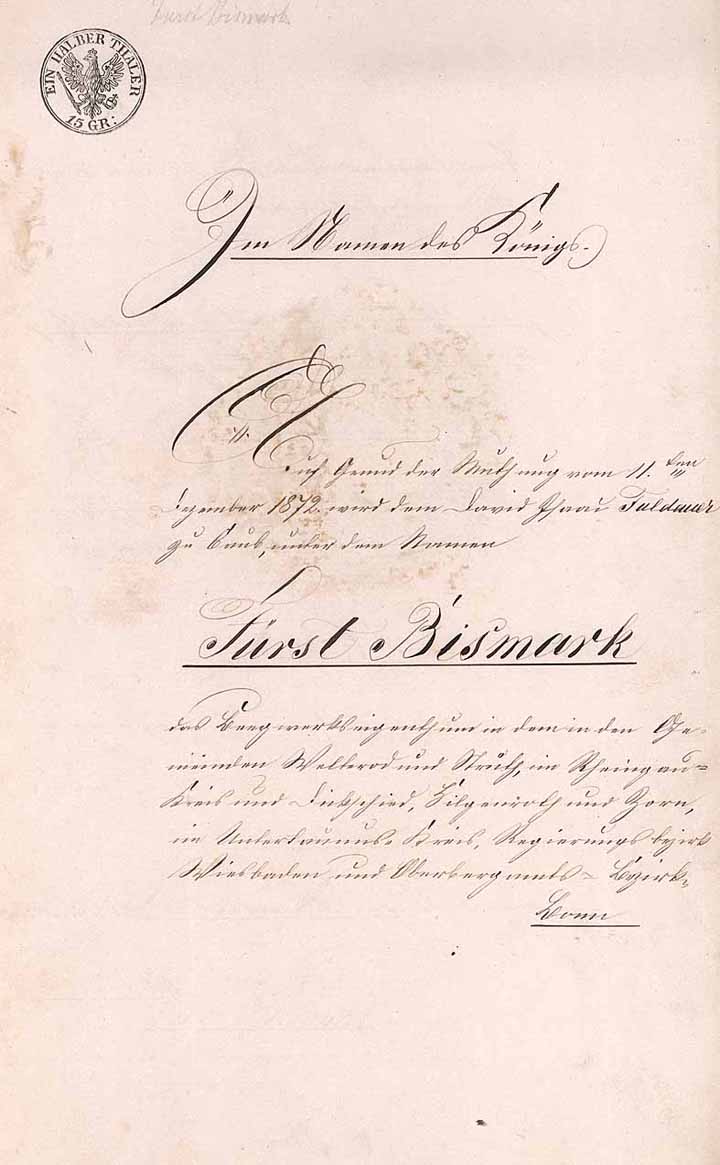 Fürst Bismark
EIN HALBER THALER
15 GR:
Im Namen des Königs.
Auf Grund der Muthung vom 11. ten
Dezember 1872. wird dem David Isaac
zu Caub, unter dem Namen
Fürst Bismark
das Bergwerkseigenthum in dem in den Ge-
meinden Welterod und Strüth, im Rheingau=
Kreis und Dickschied, Hilgenroth und Zorn,
im Untertaunus= Kreis, Regierungsbezirk
Wiesbaden und Oberbergamts= Bezirk=
Bonn